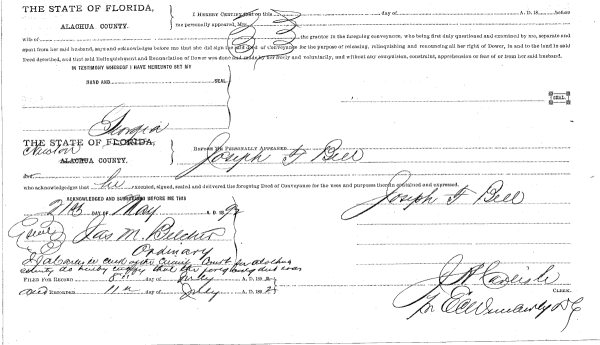 THE STATE OF FLORIDA,
ALACHUA COUNTY.
I HEREBY CERTIFY that on this day of A. D. 18 before
me personally appeared, Mrs.
wife of the grantor in the foregoing conveyance, who being first duly questioned and examined by me, separate and
apart from her said husband, says and acknowledges before me that she did sign the said deed of Conveyance for the purpose of releasing, relinquishing and renouncing all her right of Dower, in and to the land in said
Deed described, and that said Relinquishment and Renunciation of Dower was done and made by her freely and voluntarily, and without any compulsion, constraint, apprehension or fear of or from her said husband.
IN TESTIMONY WHEREOF I HAVE HEREUNTO SET MY
HAND AND SEAL
SEAL
Georgia
THE STATE OF FLORIDA,
ALACHUA COUNTY.
BEFORE ME PERSONALLY APPEARED
Joseph F Bell
and
who acknowledges that he executed, signed, sealed and delivered the foregoing Deed of Conveyance for the uses and purposes therein contained and expressed.
ACKNOWLEDGED AND SUBSCRIBED BEFORE ME THIS
21st DAY OF May A. D. 1892
Joseph F Bell
Jas M. Belcher
Ordinary
county do hereby certify that the foregoing deed was
FILED FOR RECORD day of July A. D. 189
and RECORDED 11th day of July A. D. 1892
CLERK.